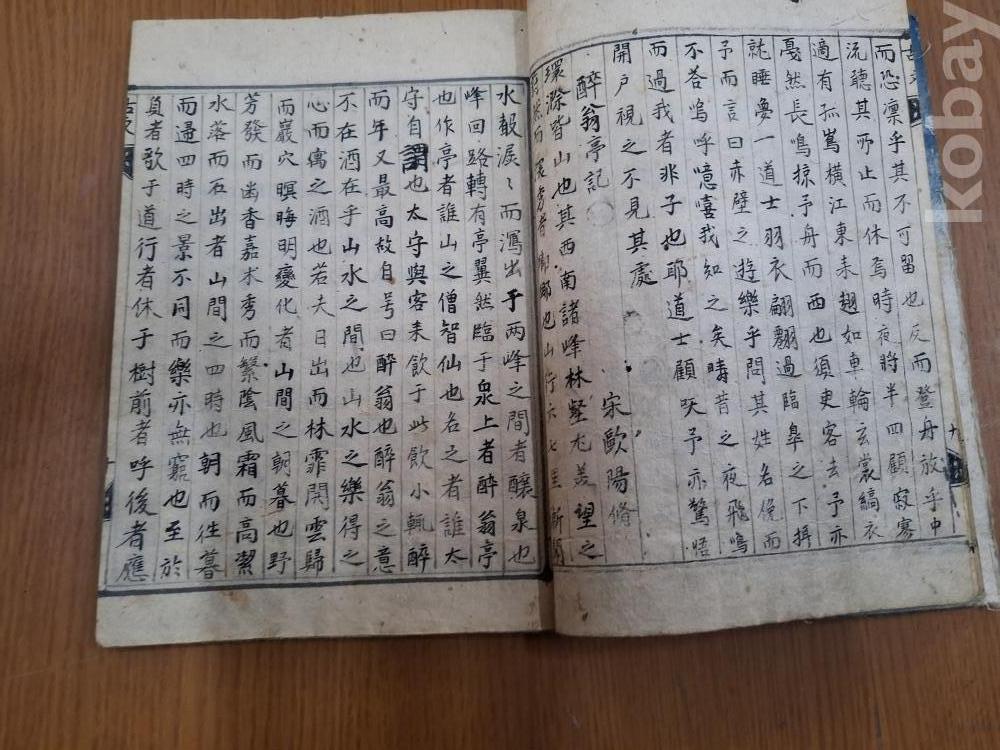 古文
而恐凛乎其不可留也反而登舟放乎中
流聽其所止而休焉時夜將半四顧寂寥
適有孤鶴橫江東来翅如車輪玄裳縞衣
戞然長鳴掠予舟而西也須臾客去予亦
就睡夢一道士羽衣翩翻過臨皐之下揖
予而言曰赤壁之遊樂乎問其姓名俛而
不答嗚呼噫嘻我知之矣疇昔之夜飛鳴
而過我者非子也耶道士顧笑予亦驚悟
開戶視之不見其處
醉翁亭記 宋歐陽脩
環滁皆山也其西南諸峰林壑尤美望之
蔚然而深秀者瑯琊也山行六七里漸聞
水聲潺〻而瀉出于两峰之間者釀泉也
峰回路轉有亭翼然臨于泉上者醉翁亭
也作亭者誰山之僧智仙也名之者誰太
守自謂也太守與客来飲于此飲小輒醉
而年又最高故自号曰醉翁也醉翁之意
不在酒在乎山水之間也山水之樂得之
心而寓之酒也若夫日出而林霏開雲歸
而巖穴暝晦明變化者山間之朝暮也野
芳發而幽香嘉木秀而繁陰風霜而高潔
水落而石出者山間之四時也朝而往暮
而歸四時之景不同而樂亦無窮也至於
負者歌于道行者休于樹前者呼後者應
古文
kobay